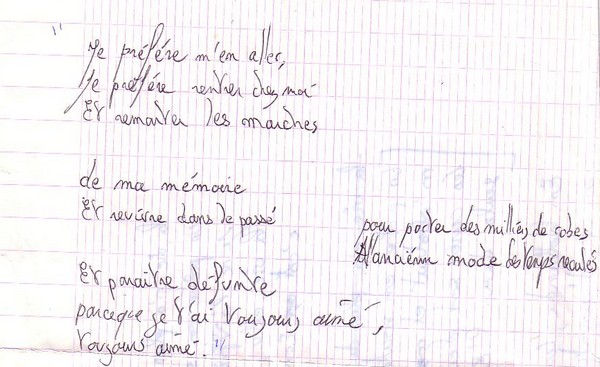 "
Je préfére m'en aller,
Je préfére rentrer chez moi
Et remonter les marches
de ma mémoire
Et revivre dans le passé
pour porter des milliers de robes
A l'ancienne mode des temps reculés
Et paraître défunte
parceque je t'ai toujours aimé,
toujours aimé."